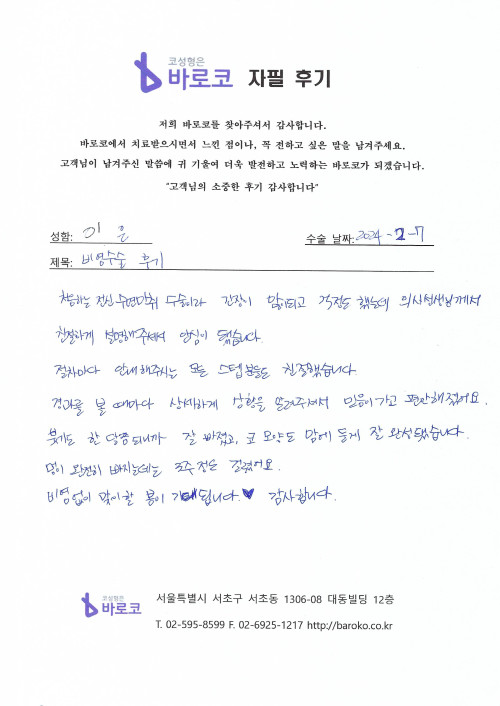 코성형은
바로코 자필 후기
저희 바로코를 찾아주셔서 감사합니다.
바로코에서 치료받으시면서 느낀 점이나, 꼭 전하고 싶은 말을 남겨주세요.
고객님이 남겨주신 말씀에 귀 기울여 더욱 발전하고 노력하는 바로코가 되겠습니다.
"고객님의 소중한 후기 감사합니다"
성함: 이 은 수술 날짜: 2024-2-7
제목: 비염수술 후기
처음하는 전신 수면마취 수술이라 긴장이 많이되고 걱정도 했는데 의사선생님께서
친절하게 설명해주셔서 안심이 됐습니다.
절차마다 안내해주시는 모든 스텝분들도 친절했습니다
경과를 볼 때마다 상세하게 상황을 알려주셔서 믿음이가고 편안해졌어요.
붓기도 한 달쯤되니까 잘 빠졌고, 코 모양도 맘에 들게 잘 완성됐습니다.
멍이 완전히 빠지는데는 2주정도 걸렸어요.
비염없이 맞이할 봄이 기대됩니다.♥ 감사합니다.
코성형은
바로코
서울특별시 서초구 서초동 1306-08 대동빌딩 12층
T. 02-595-8599 F. 02-6925-1217 http://baroko.co.kr